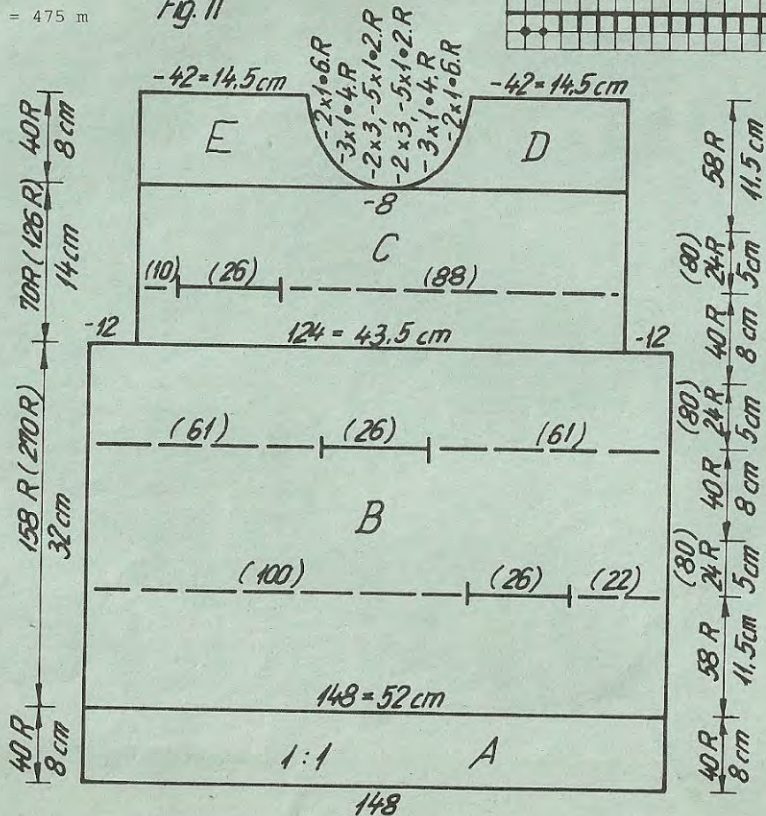 = 475 m
Fig. 11
-2x1•6.R
-3x1•4.R
-2x3,-5x1•2.R
-2x3,-5x1•2.R
-3x1•4.R
-2x1•6.R
-42=14.5cm
-42=14.5cm
E
D
-8
C
(10)
(26)
(88)
-12
124 = 43.5 cm
-12
(61)
(26)
(61)
B
(100)
(26)
(22)
148=52cm
1:1
A
148
40R
8 cm
70R (126 R)
14cm
158 R (270R)
32cm
40R
8 cm
58 R
11.5 cm
(80)
24R
5cm
40R
8 cm
(80)
24R
5cm
40R
8 cm
(80)
24 R
5cm
58 R
11.5cm
40R
8 cm